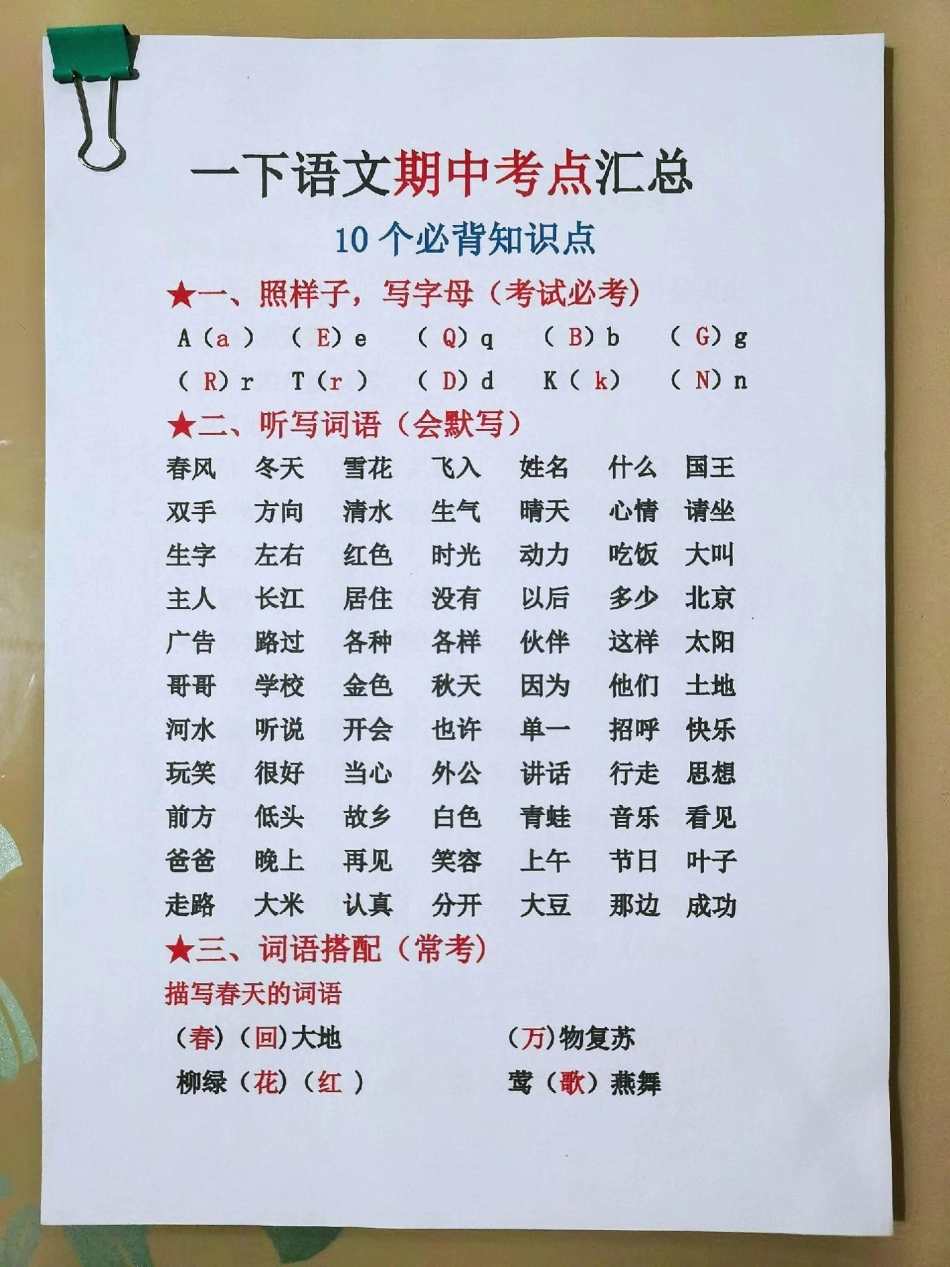 一下语文期中考点汇总
10 个必背知识点
★一、照样子，写字母（考试必考）
A（a ）（ E）e （ Q）q （ B）b （ G）g
（ R）r T（r ） （ D）d K（ k） （ N）n
★二、听写词语（会默写）
春风 冬天 雪花 飞入 姓名 什么 国王
双手 方向 清水 生气 晴天 心情 请坐
生字 左右 红色 时光 动力 吃饭 大叫
主人 长江 居住 没有 以后 多少 北京
广告 路过 各种 各样 伙伴 这样 太阳
哥哥 学校 金色 秋天 因为 他们 土地
河水 听说 开会 也许 单一 招呼 快乐
玩笑 很好 当心 外公 讲话 行走 思想
前方 低头 故乡 白色 青蛙 音乐 看见
爸爸 晚上 再见 笑容 上午 节日 叶子
走路 大米 认真 分开 大豆 那边 成功
★三、词语搭配（常考）
描写春天的词语
（春）（回)大地 （万)物复苏
柳绿（花)（红 ) 莺（歌）燕舞